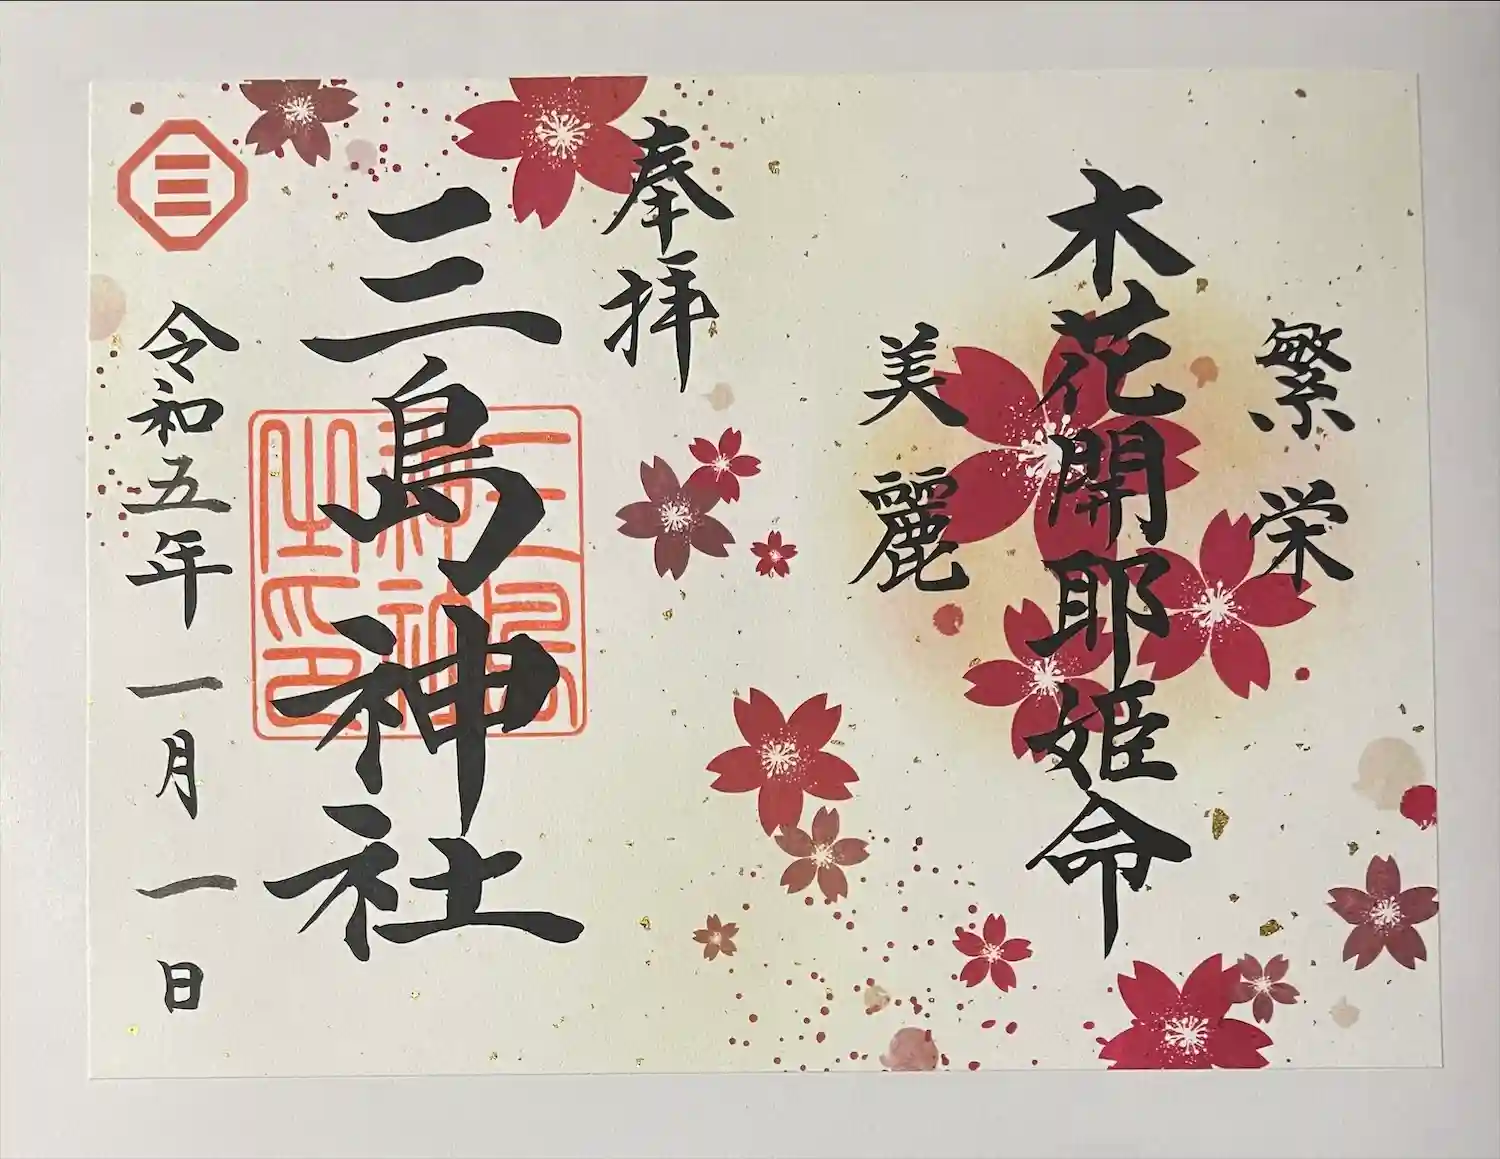 繁栄
木花開耶姫命
美麗
奉拝
三島神社
三島神社之印
令和五年一月一日
三